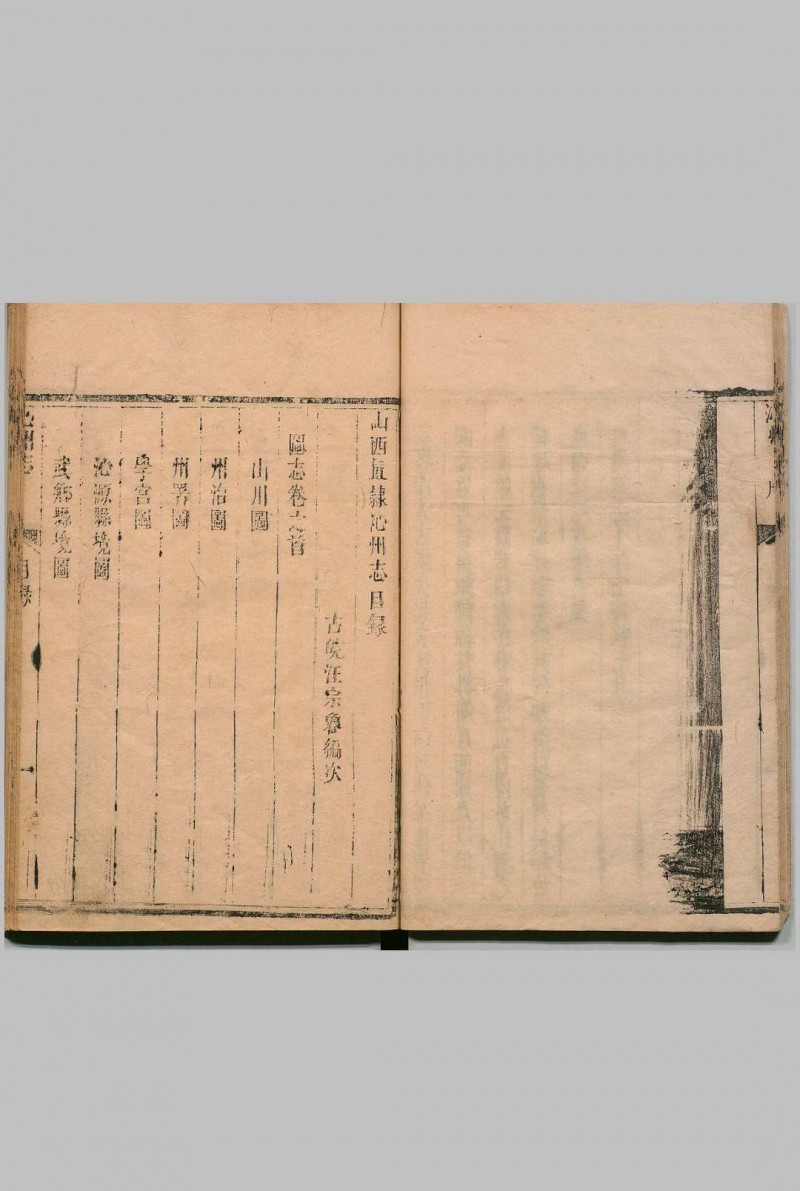 山西直隸沁州志目錄
古皖汪宗魯編次
圖志卷之首
山川圖
州治圖
州署圖
學宮圖
沁源縣境圖
武鄉縣境圖
沁州志
目錄
一